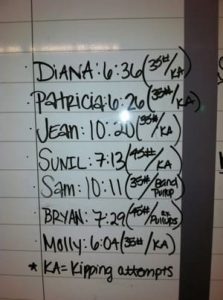 DIANA: 6:36 (35#/KA)
Patricia: 6:26 (35#/KA)
JEAN: 10:20 (95#/KA)
SUNIL: 7:13 (45#/KA)
Sam: 10:11 (35#/Band Pullup)
BRYAN: 7:29 (45#/RX Pullups)
Molly: 6:04 (35#/KA)
* KA = Kipping attempts